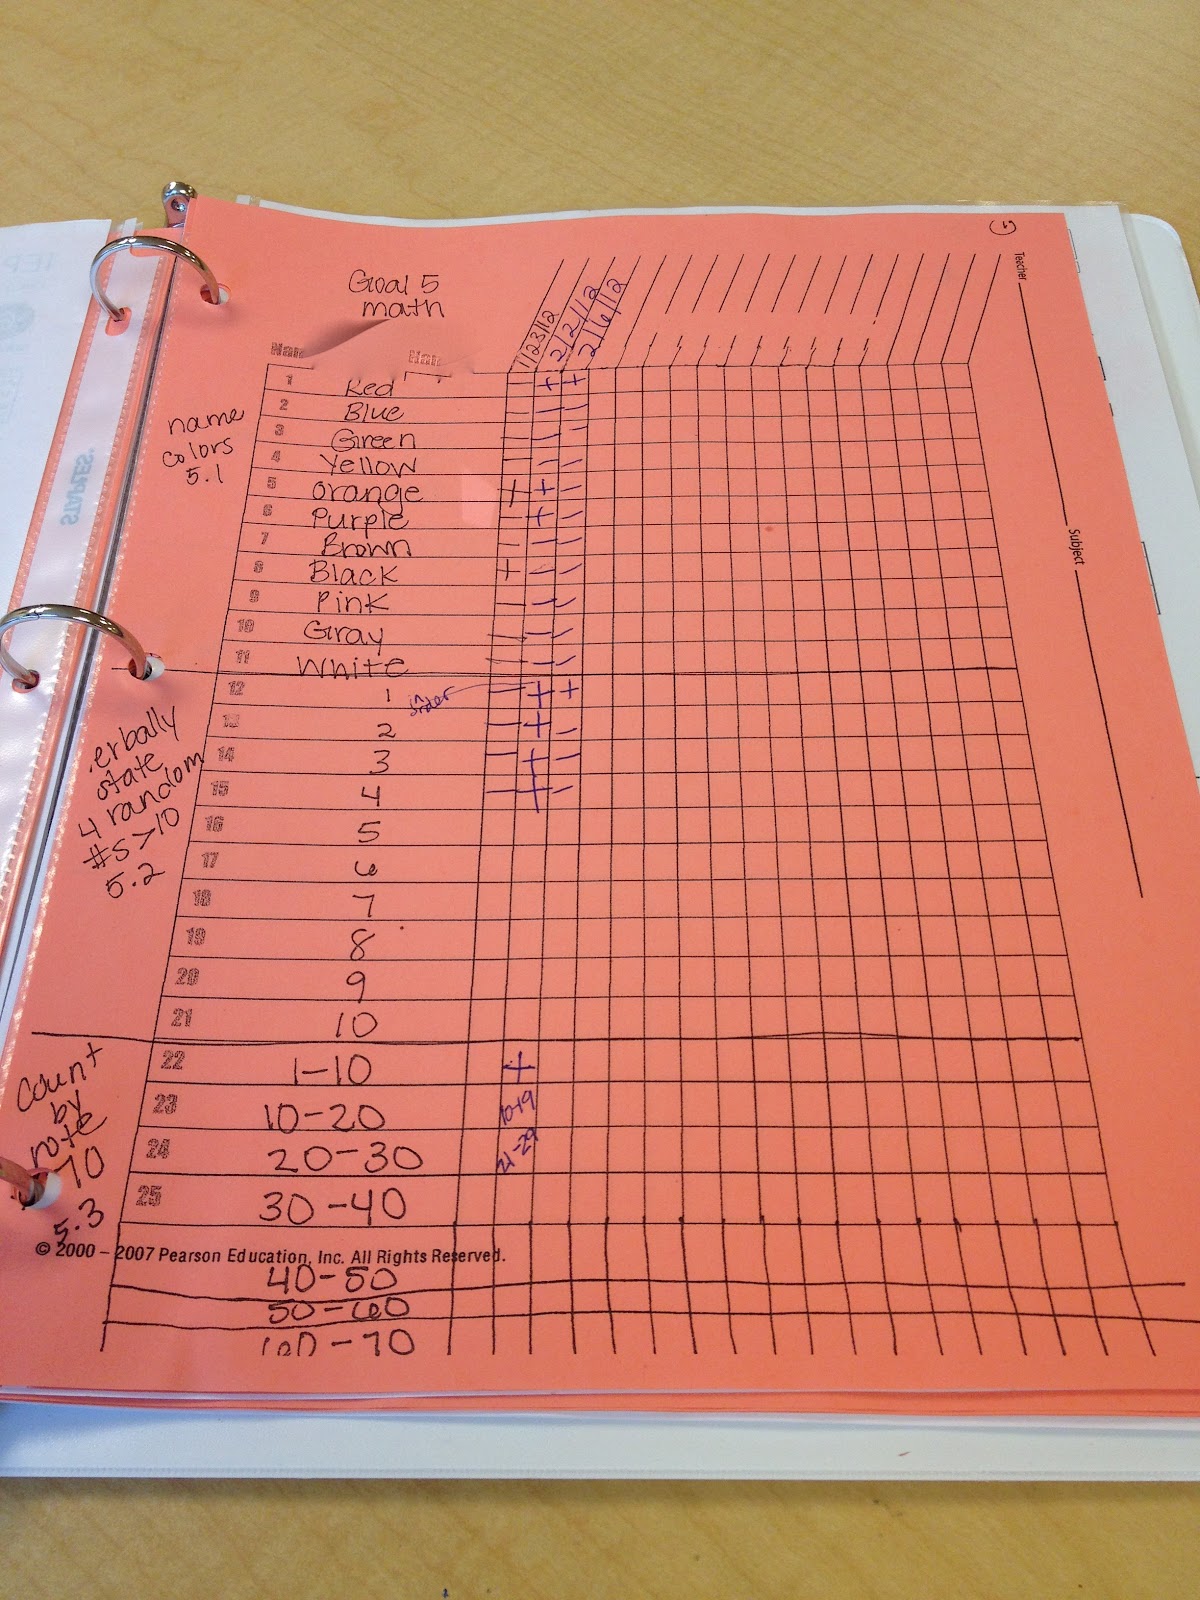 Goal 5
math
Teacher
Subject
1/23/12
2/2/12
2/6/12
name
colors
5.1
1 Red - + +
2 Blue - - -
3 Green - - -
4 Yellow - - -
5 Orange + + -
6 Purple - + -
7 Brown - - -
8 Black + - -
9 Pink - - -
10 Gray - - -
11 White - - -
erbally
state
4 random
#s >10
5.2
12 1 in order - + +
13 2 - + -
14 3 - + -
15 4 - + -
16 5
17 6
18 7
19 8
20 9
21 10
Count
by
rote
70
5.3
22 1-10 +
23 10-20 10-19
24 20-30 21-29
25 30-40
© 2000 – 2007 Pearson Education, Inc. All Rights Reserved.
40-50
50-60
60-70
STAPLES
IEP